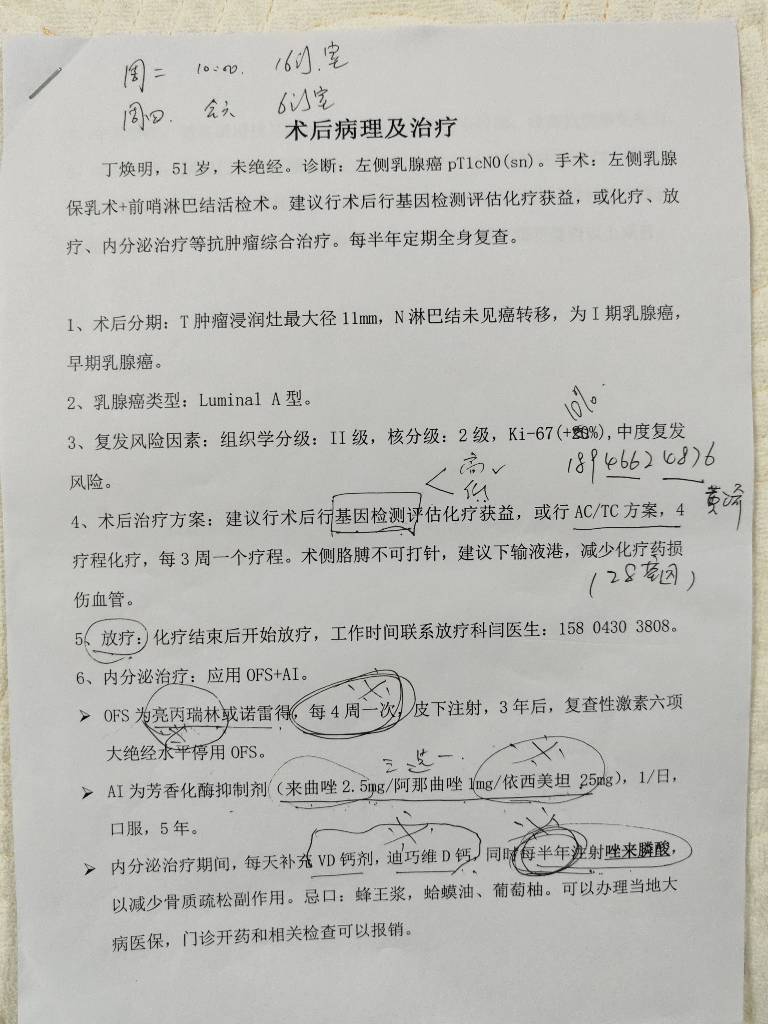 周二 10:00. 16诊.室
周四. 全天 6诊室
术后病理及治疗
丁焕明，51岁，未绝经。诊断：左侧乳腺癌pT1cN0(sn)。手术：左侧乳腺
保乳术+前哨淋巴结活检术。建议行术后行基因检测评估化疗获益，或化疗、放
疗、内分泌治疗等抗肿瘤综合治疗。每半年定期全身复查。
1、术后分期：T 肿瘤浸润灶最大径11mm，N 淋巴结未见癌转移，为 I 期乳腺癌，
早期乳腺癌。
2、乳腺癌类型：Luminal A 型。
10%
3、复发风险因素：组织学分级：II 级，核分级：2 级，Ki-67(+%),中度复发
风险。
高✓
低
18946624876
黄
4、术后治疗方案：建议行术后行基因检测评估化疗获益，或行 AC/TC 方案，4
疗程化疗，每 3 周一个疗程。术侧胳膊不可打针，建议下输液港，减少化疗药损
伤血管。
(28基因)
5、放疗：化疗结束后开始放疗，工作时间联系放疗科闫医生：158 0430 3808。
6、内分泌治疗：应用 OFS+AI。
➢ OFS 为亮丙瑞林或诺雷得，每 4 周一次，皮下注射，3 年后，复查性激素六项
大绝经水平停用 OFS。
三选一
➢ AI 为芳香化酶抑制剂（来曲唑 2.5mg/阿那曲唑 1mg/依西美坦 25mg），1/日，
口服，5 年。
➢ 内分泌治疗期间，每天补充 VD 钙剂，迪巧维 D 钙，同时每半年注射唑来膦酸，
以减少骨质疏松副作用。忌口：蜂王浆，蛤蟆油、葡萄柚。可以办理当地大
病医保，门诊开药和相关检查可以报销。